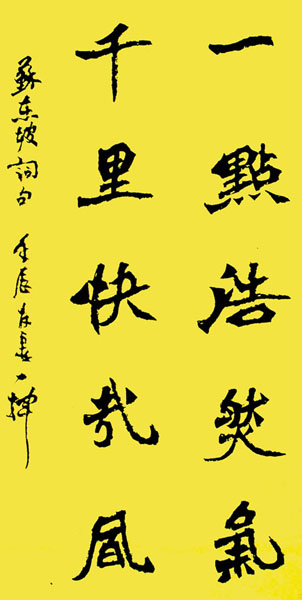 一點浩然氣
千里快哉風
蘇東坡詞句 壬辰